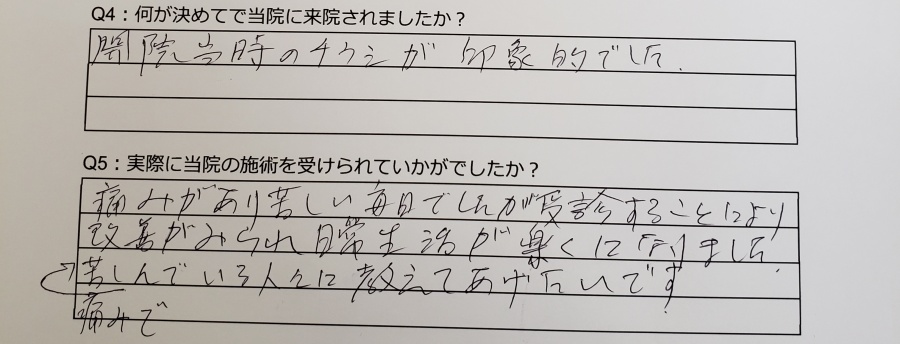 Q4：何が決めてで当院に来院されましたか？
開院当時のチラシが印象的でした.
Q5：実際に当院の施術を受けられていかがでしたか？
痛みがあり苦しい毎日でしたが受診することにより
改善がみられ日常生活が楽くになりました.
苦しんでいる人々に教えてあげたいです
痛みで